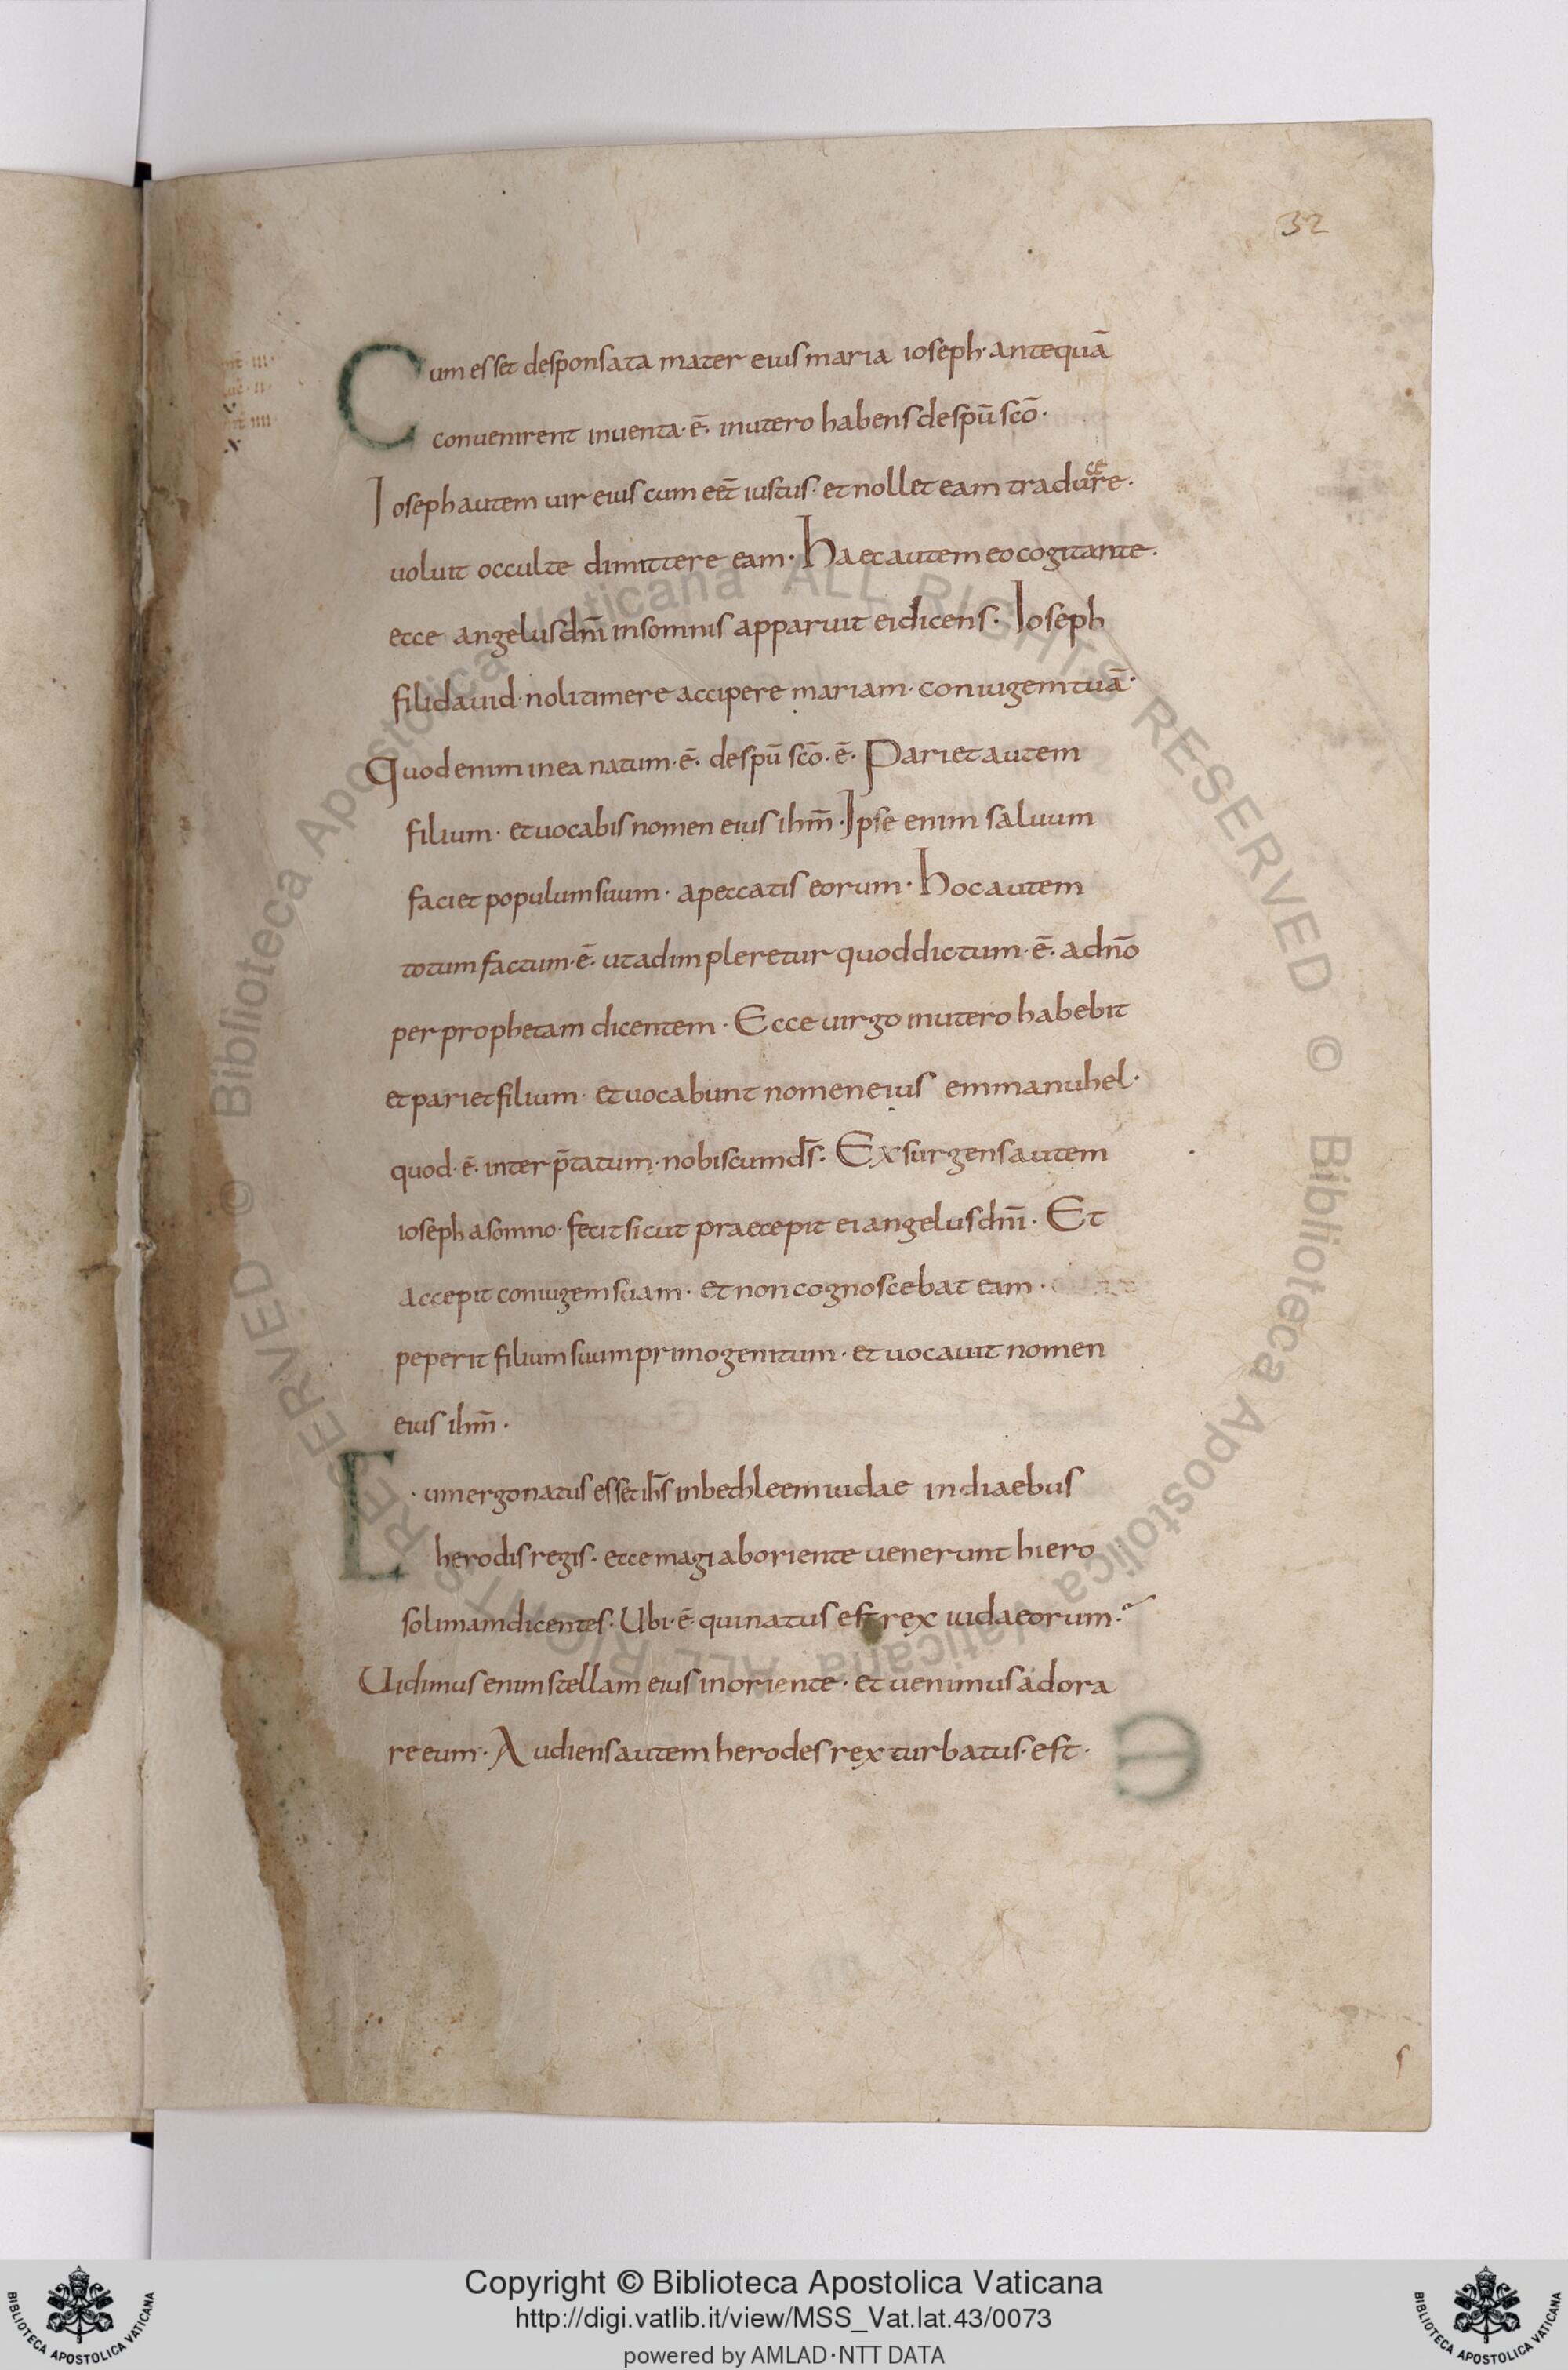 32
Cum esset desponsata mater eius maria ioseph· antequā
conuenirent inuenta·ē· inutero habens despū scō·
Ioseph autem uir eius cum eet̄ iustus· et nollet eam traducere·
uoluit occulte dimittere eam· Haec autem eo cogitante·
ecce angelus dnī in somnis apparuit ei dicens· Ioseph
fili dauid· noli timere accipere mariam· coniugem tuā·
Quod enim in ea natum·ē· de spū scō·ē· Pariet autem
filium· et uocabis nomen eius ihm̄· Ipse enim saluum
faciet populum suum· a peccatis eorum· Hoc autem
totum factum·ē· ut adimpleretur quod dictum·ē· a dnō
per prophetam dicentem· Ecce uirgo inutero habebit
et pariet filium· et uocabunt nomen eius emmanuhel·
quod·ē· interp̄tatum· nobiscum ds̄· Exsurgens autem
ioseph a somno· fecit sicut praecepit ei angelus dnī· Et
accepit coniugem suam· et non cognoscebat eam·
peperit filium suum primogenitum· et uocauit nomen
eius ihm̄·
E·um ergo natus esset ihs̄ in bethleem iudae in diaebus
herodis regis· ecce magi ab oriente uenerunt hiero
solimam dicentes· Ubi·ē· qui natus est rex iudaeorum·
Uidimus enim stellam eius in oriente· et uenimus adora
re eum· Audiens autem herodes rex turbatus· est·
© Biblioteca Apostolica Vaticana ALL RIGHTS RESERVED © Biblioteca Apostolica Vaticana ALL RIGHTS RESERVED
Copyright © Biblioteca Apostolica Vaticana
http://digi.vatlib.it/view/MSS_Vat.lat.43/0073
powered by AMLAD·NTT DATA
BIBLIOTECA APOSTOLICA VATICANA
BIBLIOTECA APOSTOLICA VATICANA